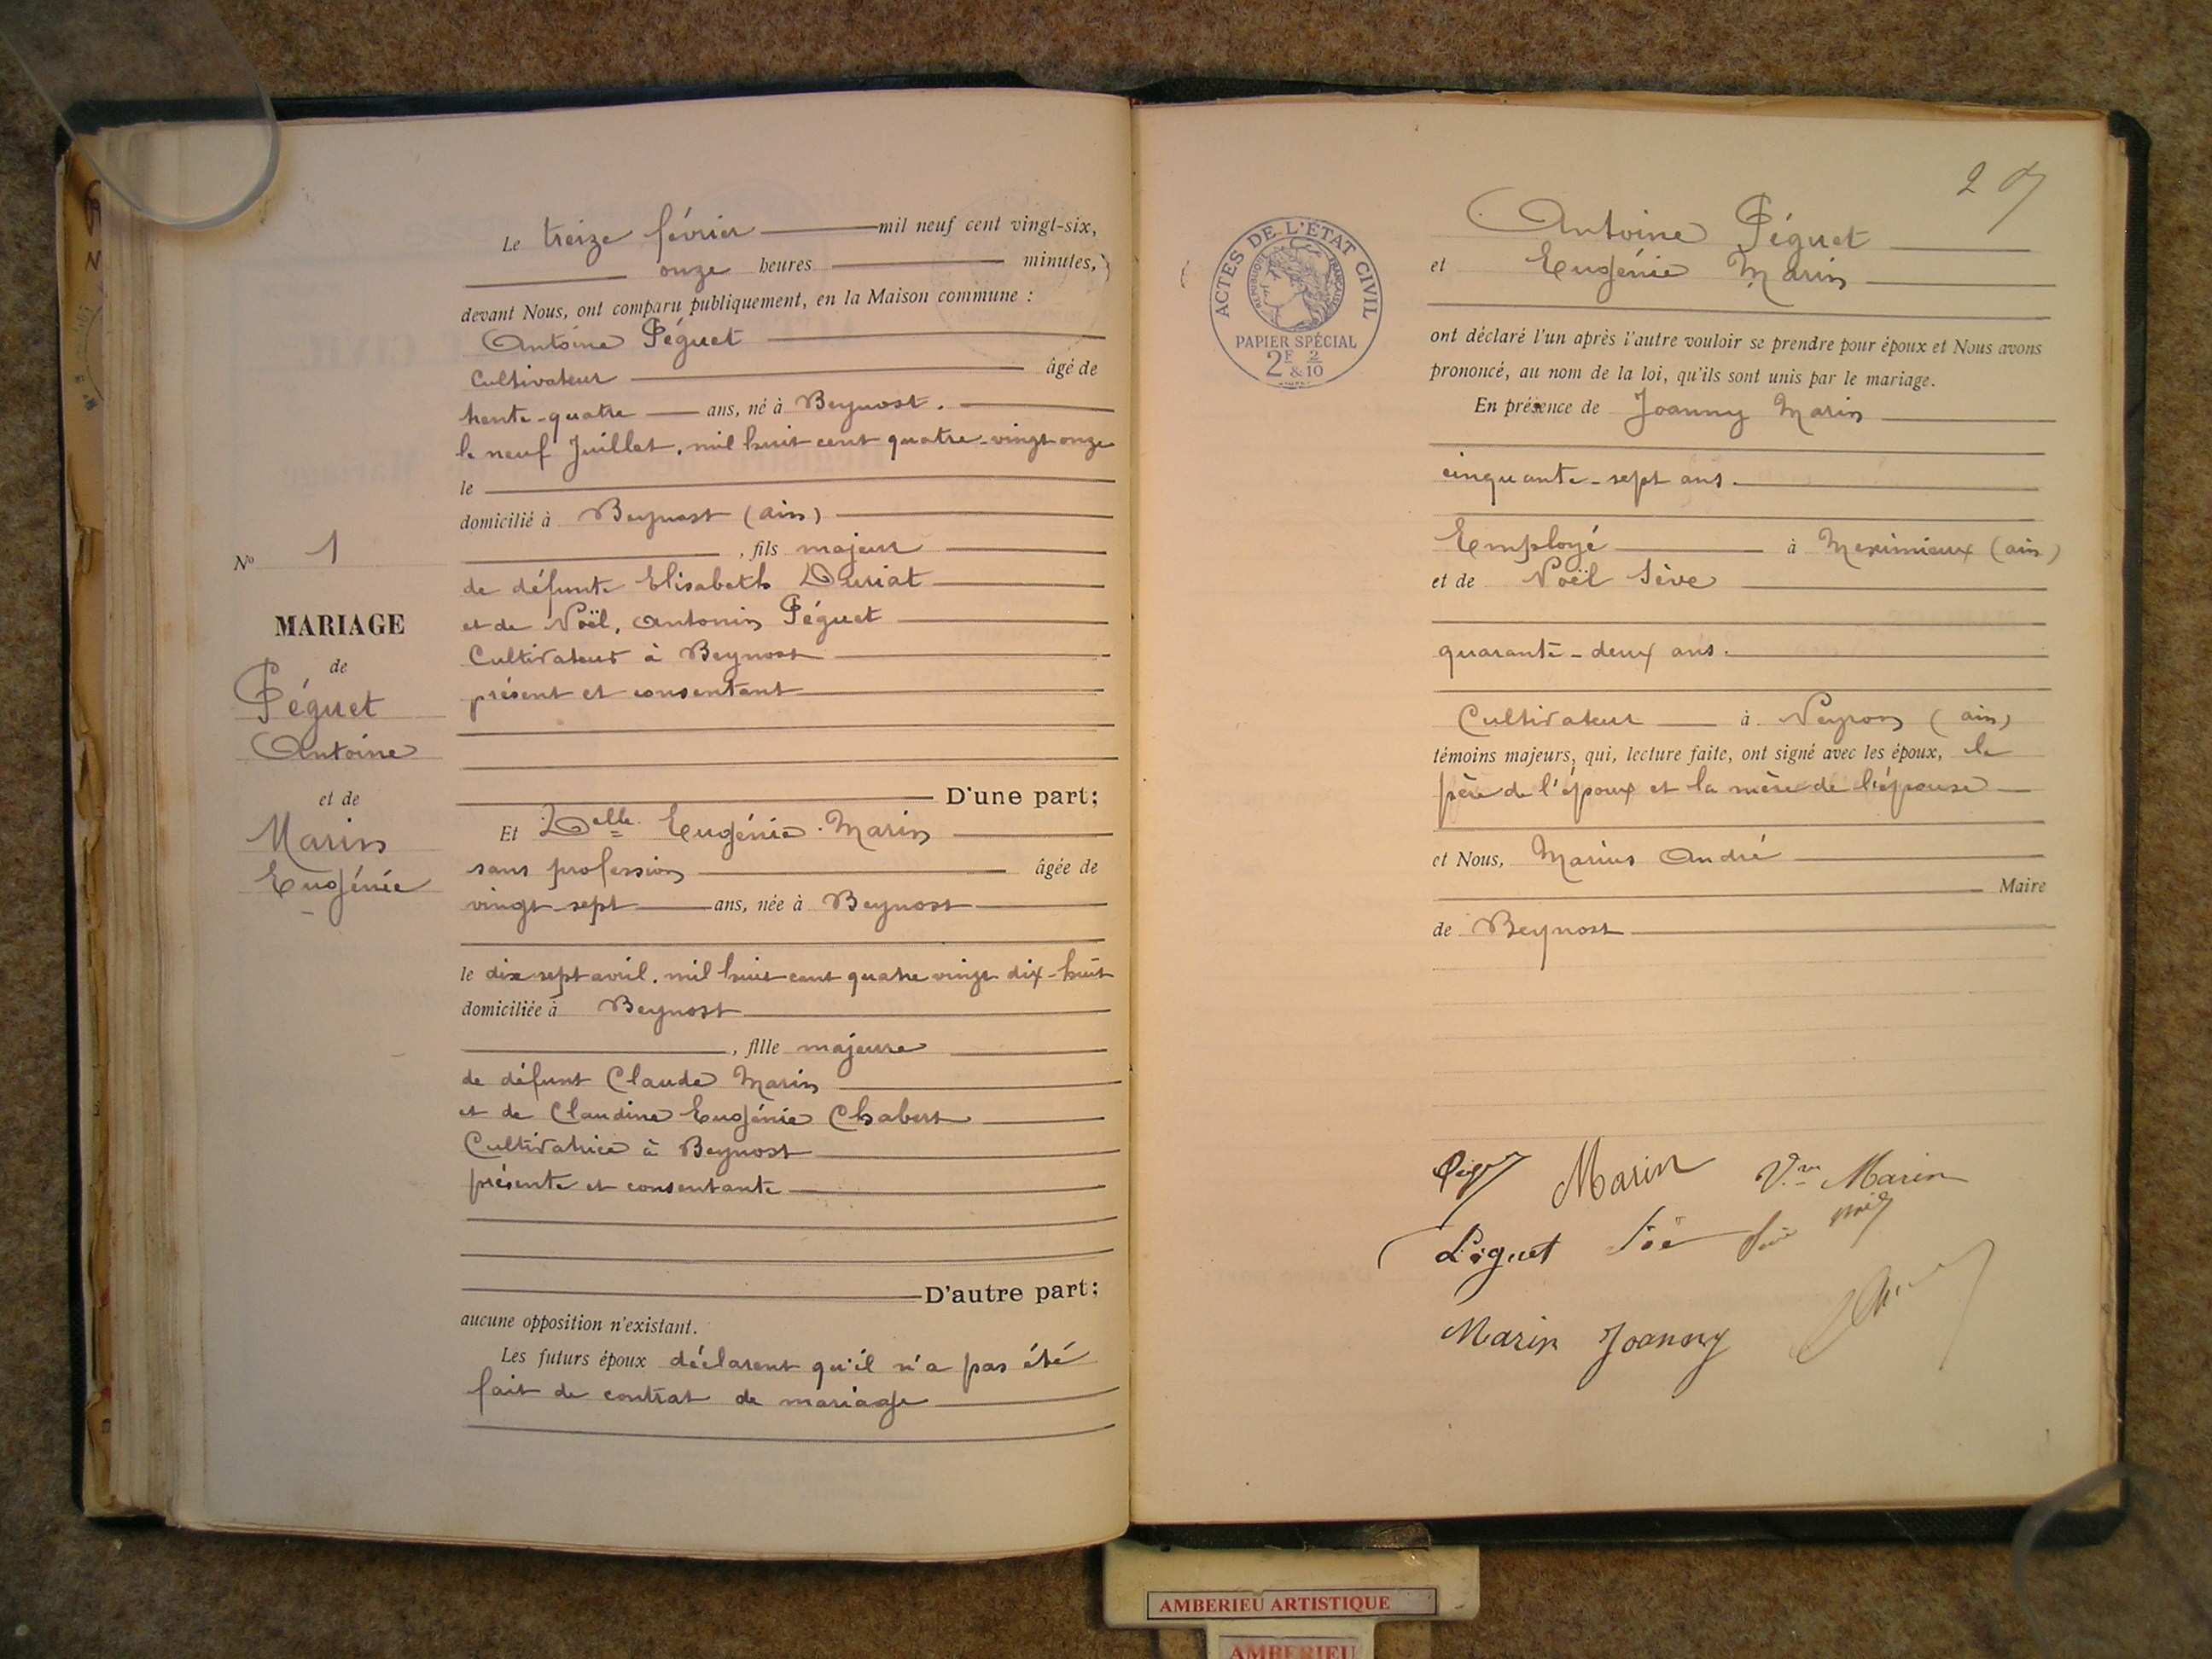 Le treize février mil neuf cent vingt-six,
onze heures minutes,
devant Nous, ont comparu publiquement, en la Maison commune :
Antoine Péguet
Cultivateur âgé de
trente-quatre ans, né à Beynost.
le neuf Juillet, mil huit cent quatre-vingt onze
le
domicilié à Beynost (ain)
, fils majeur
de défunte Elisabeth Duriat
et de Noël, Antonin Péguet
Cultivateur à Beynost
présent et consentant
D'une part;
Et Delle Eugénie Marin
sans profession âgée de
vingt-sept ans, née à Beynost
le dix sept avril, mil huit cent quatre vingt dix-huit
domiciliée à Beynost
, fille majeure
de défunt Claude Marin
et de Claudine Eugénie Chabert
Cultivatrice à Beynost
présente et consentante
D'autre part;
aucune opposition n'existant.
Les futurs époux déclarent qu'il n'a pas été
fait de contrat de mariage
No 1
MARIAGE
de
Péguet
Antoine
et de
Marin
Eugénie
27
ACTES DE L'ÉTAT CIVIL
RÉPUBLIQUE FRANÇAISE
PAPIER SPÉCIAL
2F & 2/10
Antoine Péguet
et Eugénie Marin
ont déclaré l'un après l'autre vouloir se prendre pour époux et Nous avons
prononcé, au nom de la loi, qu'ils sont unis par le mariage.
En présence de Joanny Marin
cinquante-sept ans.
Employé à Meximieux (ain)
et de Noël Sève
quarante-deux ans.
Cultivateur à Neyron (ain)
témoins majeurs, qui, lecture faite, ont signé avec les époux, le
père de l'époux et la mère de l'épouse
et Nous, Marius André
Maire
de Beynost
Marin Vve Marin
Péguet
Marin Joanny
AMBERIEU ARTISTIQUE
AMBERIEU